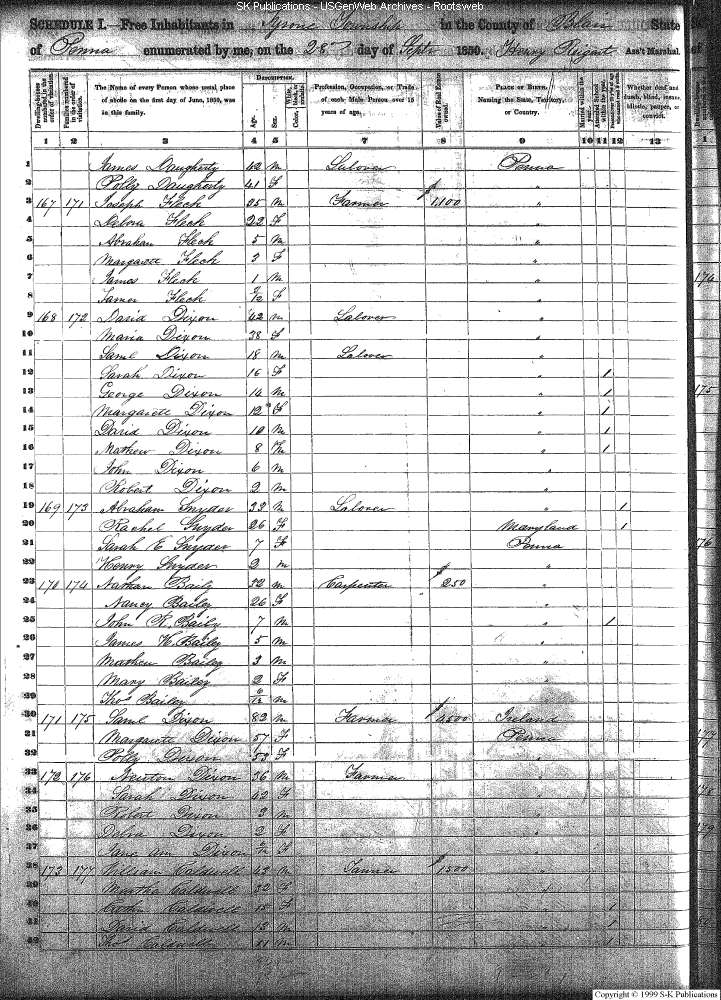 SK Publications - USGenWeb Archives - Rootsweb
SCHEDULE I.—Free Inhabitants in Tyrone Township in the County of Blair State
of Penna enumerated by me, on the 28th day of Septr 1850. Henry Ass't Marshal.
Dwelling-houses numbered in the order of visitation.
Families numbered in the order of visitation.
The Name of every Person whose usual place of abode on the first day of June, 1850, was in this family.
DESCRIPTION.
Age.
Sex.
White, black, or mulatto.
Profession, Occupation, or Trade of each Male Person over 15 years of age.
Value of Real Estate owned.
PLACE OF BIRTH. Naming the State, Territory, or Country.
Married within the year.
Attended School within the year.
Whether deaf and dumb, blind, insane, idiotic, pauper, or convict.
1 2 3 4 5 6 7 8 9 10 11 12 13
1 James Daugherty 42 m Labover Penna
2 Polly Daugherty 41 F "
3 167 171 Joseph Fleck m Farmer $ 1100 "
4 Debora Fleck 22 F "
5 Abraham Fleck 5 m "
6 Margarett Fleck 3 F "
7 James Fleck 1 m "
8 Fleck /12 F "
9 168 172 David Dixon 42 m Labover "
10 Maria Dixon 38 F "
11 Saml Dixon 18 m Labover "
12 Sarah Dixon 16 F " 1
13 George Dixon 14 m " 1
14 Margarett Dixon 12 F " 1
15 David Dixon 10 m " 1
16 Mathew Dixon 8 m " 1
17 John Dixon 6 m "
18 Robert Dixon 2 m "
19 169 173 Abraham Snyder 33 m Labover " 1
20 Rachel Snyder 26 F Maryland 1
21 Sarah E Snyder 7 F Penna
22 Henry Snyder 2 m "
23 170 174 Nathan Baily 32 m Carpenter $ 250 "
24 Nancy Bailey 26 F "
25 John R. Baily 7 m " 1
26 James H. Bailey 5 m "
27 Mathew Bailey 3 m "
28 Mary Bailey 2 F "
29 Thos Bailey 6/12 m "
30 171 175 Saml Dixon 82 m Farmer $ 4500 Ireland
31 Margarett Dixon 57 F Penna
32 Polly Dixon 53 F "
33 172 176 Newton Dixon 36 m Farmer
34 Sarah Dixon F "
35 Robert Dixon 3 m
36 Debra Dixon 2 F "
37 Jane Ann Dixon /12 F
38 173 177 William Caldwell 43 m $ 1500
39 Martha Caldwell 32 F
40 Caldwell 15 F 1
41 David Caldwell 13 m 1
42 Thos Caldwell 11 m 1
Copyright © 1999 S-K Publications